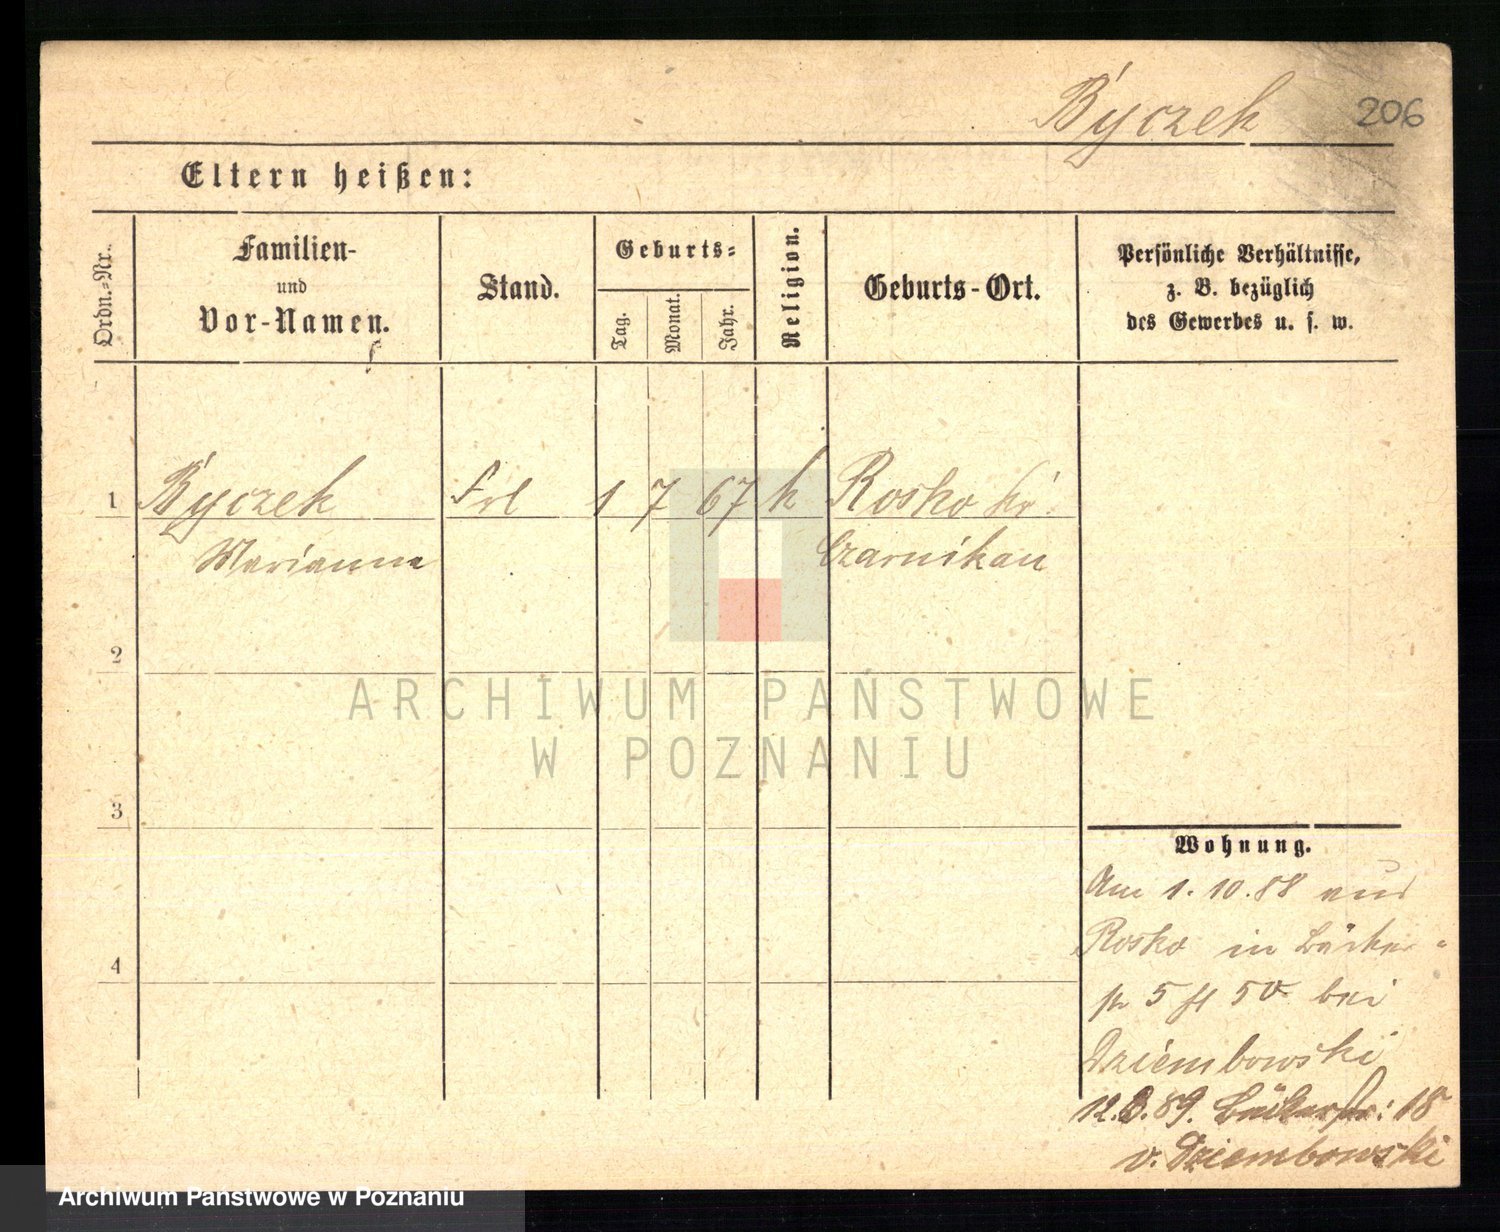 Byczek 206
Eltern heißen:
Ordn.-Nr.
Familien-
und
Vor-Namen.
Stand.
Geburts-
Tag.
Monat.
Jahr.
Religion.
Geburts-Ort.
Persönliche Verhältnisse,
z. B. bezüglich
des Gewerbes u. s. w.
1 Byczek Frl 1 7 67 k Rosko Kr.
Marianna Czarnikau
2
3
4
Wohnung.
Am 1. 10. 88 aus
Rosko in Bäcker-
bei
Dziembowski
12.3.89. Bäckerstr: 18
v. Dziembowski
ARCHIWUM PAŃSTWOWE
W POZNANIU
Archiwum Panstwowe w Poznaniu